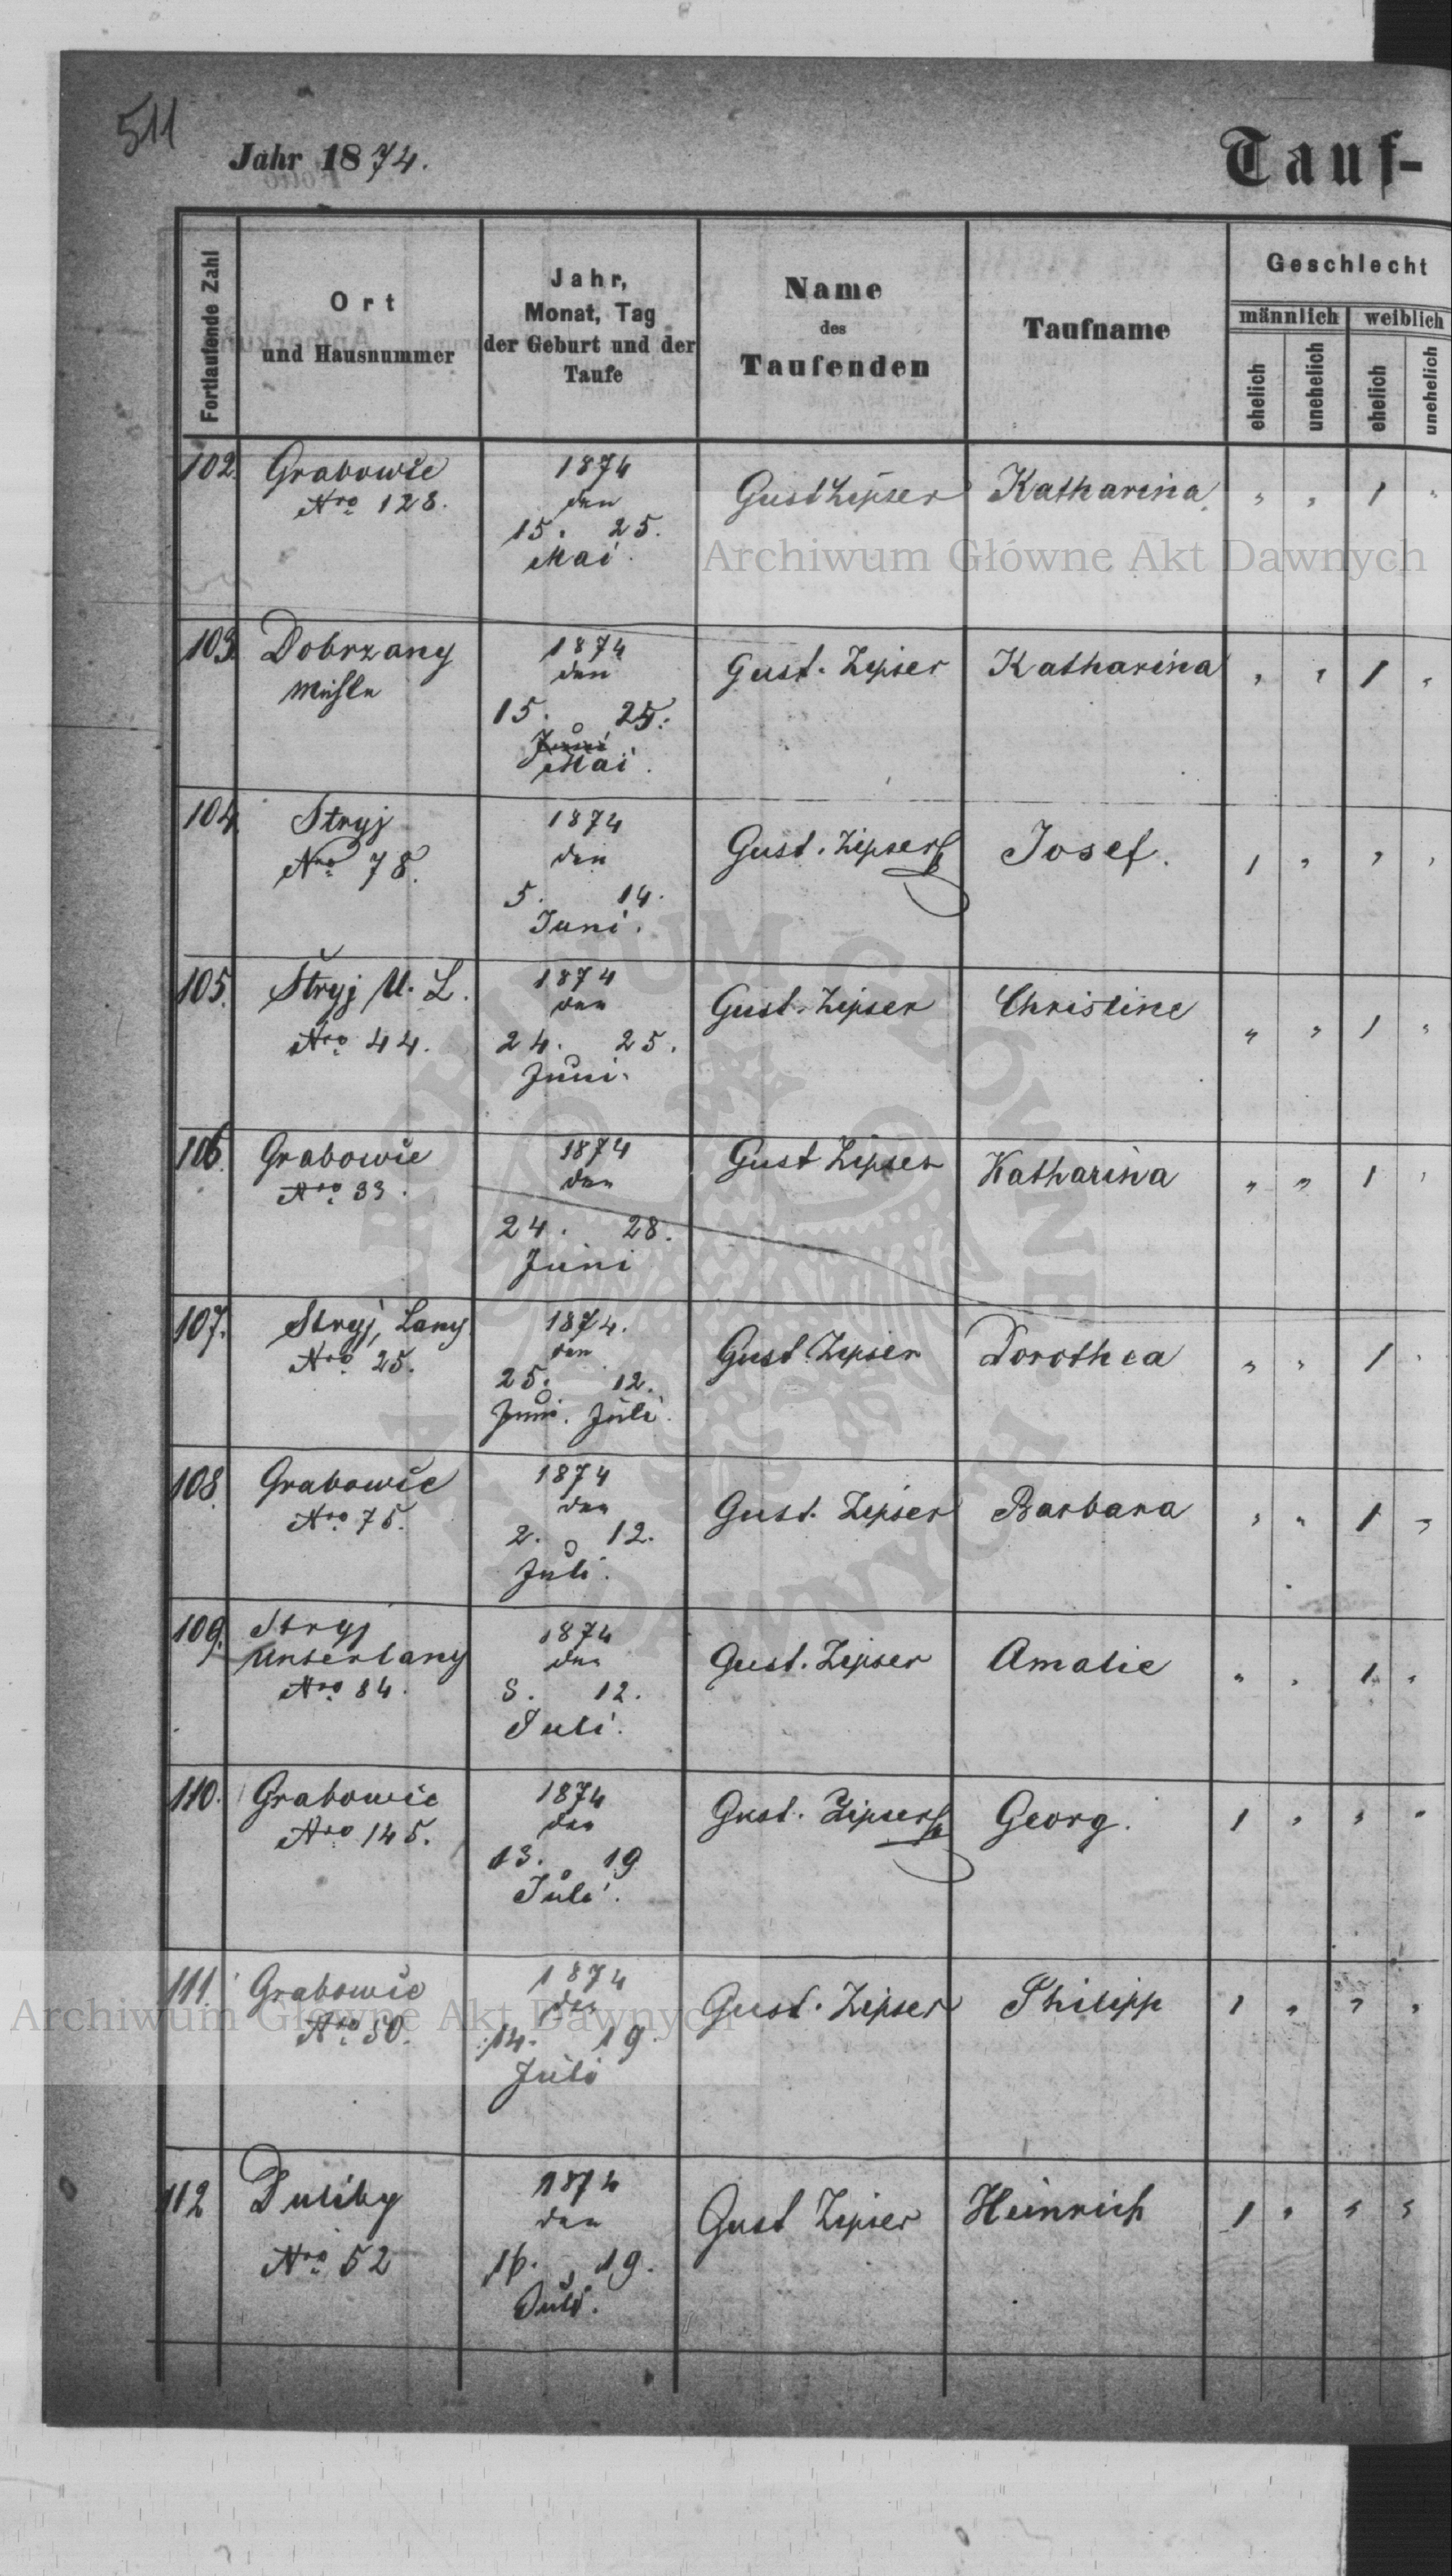 511
Jahr 1874.
Tauf-
Fortlaufende Zahl
Ort
und Hausnummer
Jahr,
Monat, Tag
der Geburt und der
Taufe
Name
des
Taufenden
Taufname
Geschlecht
männlich
weiblich
ehelich
unehelich
ehelich
unehelich
102.
Grabowie
Nro 128.
1874
den
15. 25.
Mai.
Gust Zipser
Katharina
" " 1 "
Archiwum Główne Akt Dawnych
103.
Dobrzany
Mühle
1874
den
15. 25.
Juni
Mai.
Gust. Zipser
Katharina
" " 1 "
104.
Stryj
Nro 78.
1874
den
5. 14.
Juni.
Gust. Zipser
Josef.
1 " " "
105.
Stryj U. L.
Nro 44.
1874
den
24. 25.
Juni.
Gust. Zipser
Christine
" " 1 "
106.
Grabowie
Nro 33.
1874
den
24. 28.
Juni
Gust Zipser
Katharina
" " 1 "
107.
Stryj, Lany
Nro 25.
1874.
den
25. 12.
Juni. Juli.
Gust Zipser
Dorothea
" " 1 "
108.
Grabowie
Nro 75.
1874
den
2. 12.
Juli.
Gust. Zipser
Barbara
" " 1 "
109.
Stryj
Unterlany
Nro 84.
1874
den
8. 12.
Juli.
Gust. Zipser
Amalie
" " 1 "
110.
Grabowie
Nro 145.
1874
den
13. 19
Juli.
Gust. Zipser
Georg.
1 " " "
111.
Grabowie
Nro 50.
1874
den
14. 19.
Juli
Gust. Zipser
Philipp
1 " " "
Archiwum Główne Akt Dawnych
112
Duliby
Nro 52
1874
den
16. 19.
Juli.
Gust Zipser
Heinrich
1 " " "
ARCHIWUM GŁÓWNE
AKT DAWNYCH